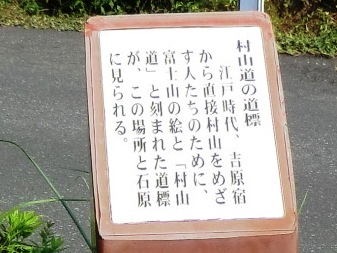 村山道の道標
江戸時代、吉原宿
から直接村山をめざ
す人たちのために、
富士山の絵と「村山
道」と刻まれた道標
が、この場所と石原
に見られる。